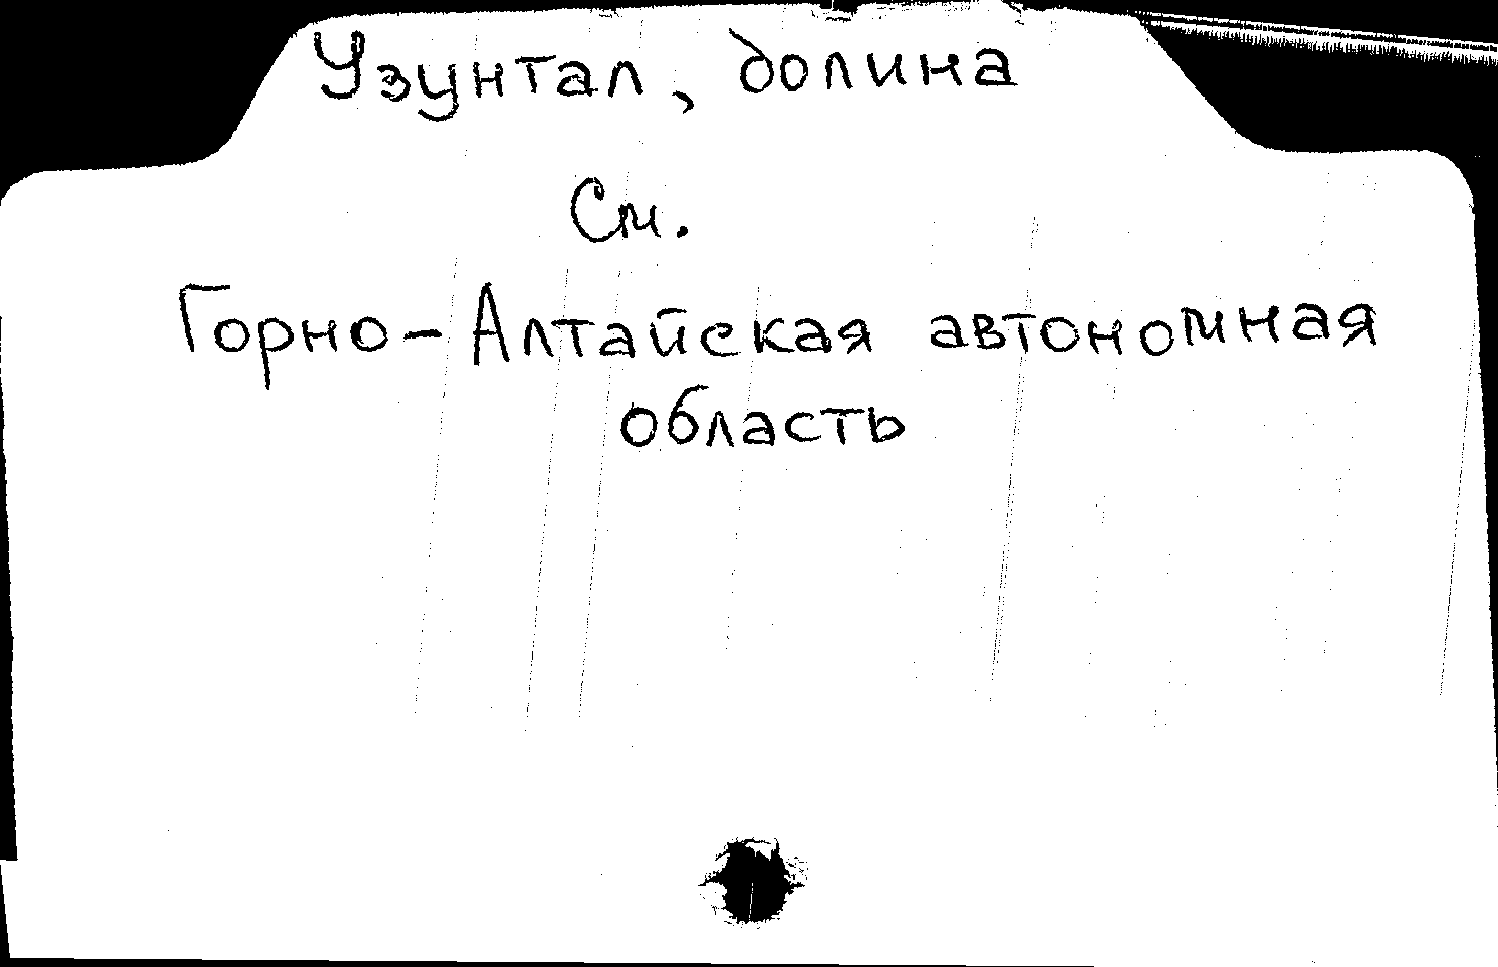 Узунтал, долина
См.
Горно-Алтайская автономная
область